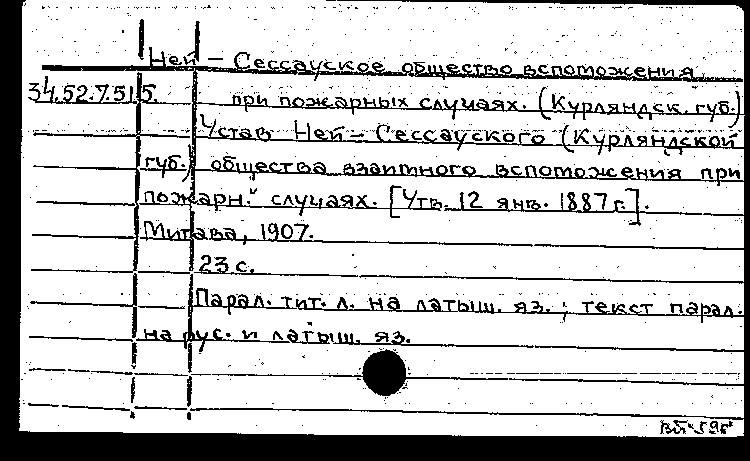 Ней – Сессауское общество вспоможения
34.52.7.51.5. при пожарных случаях. (Курляндск. губ.)
Устав Ней – Сессауского (Курляндской
губ.) общества взаимного вспоможения при
пожарн. случаях. [Утв. 12 янв. 1887 г.].
Митава, 1907.
23 с.
Парал. тит. л. на латыш. яз. ; текст парал.
на рус. и латыш. яз.